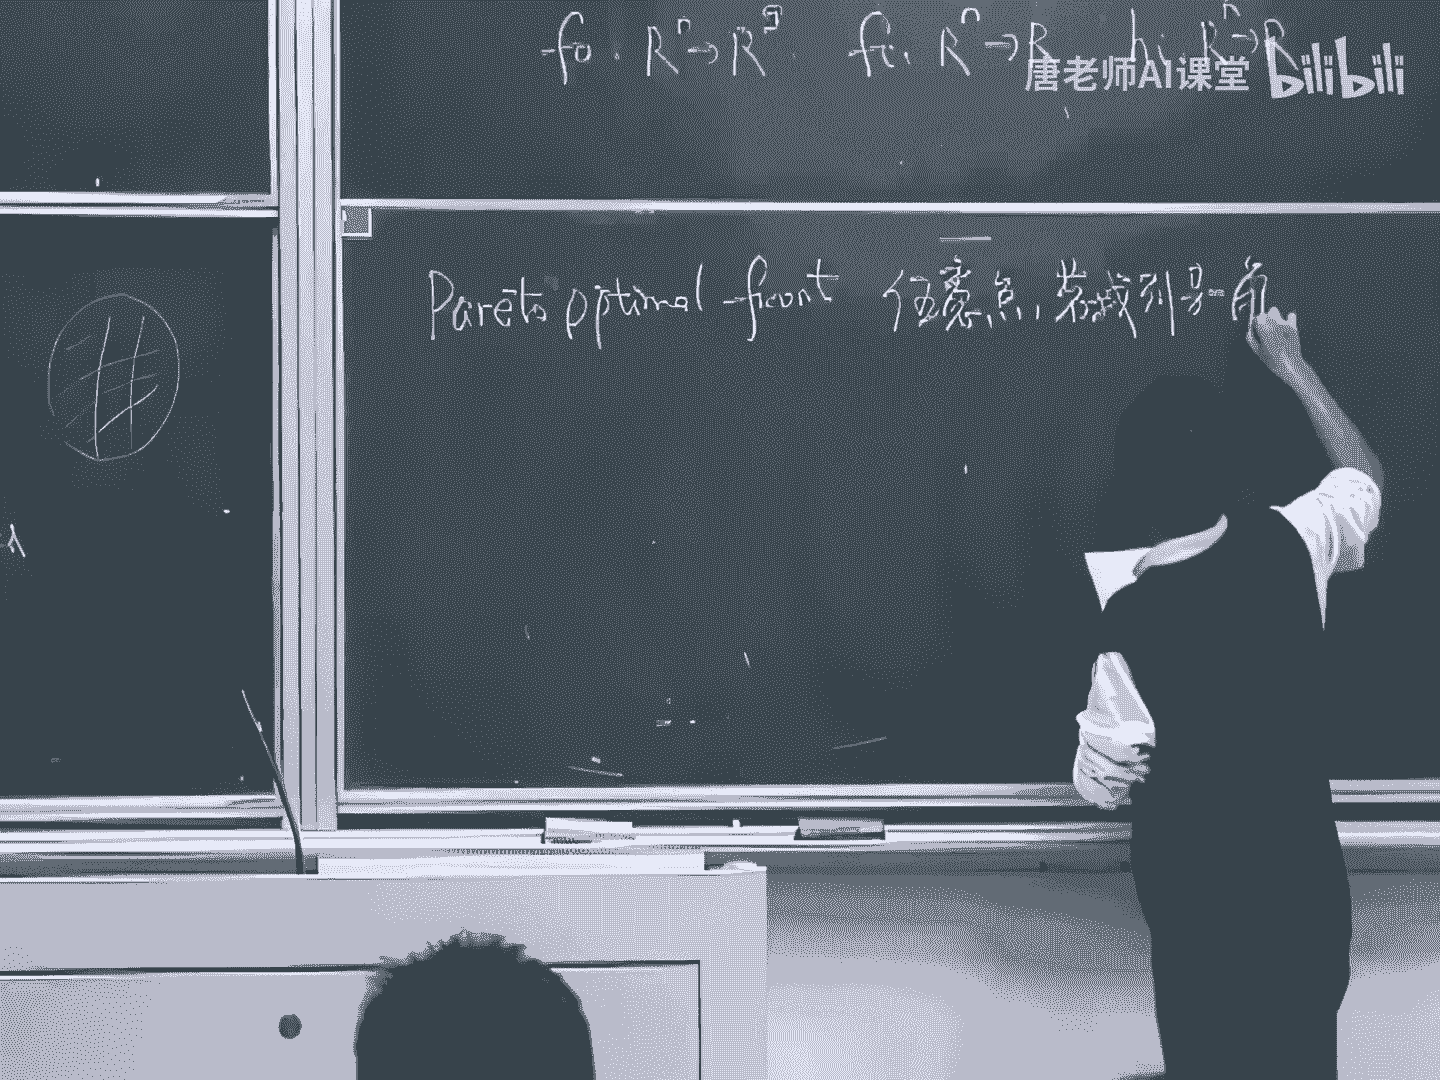 f₀: Rⁿ→R^q. fᵢ: Rⁿ→R hᵢ: Rⁿ→R
唐老师AI课堂 bilibili
Pareto optimal front 任意点, 若找到另一